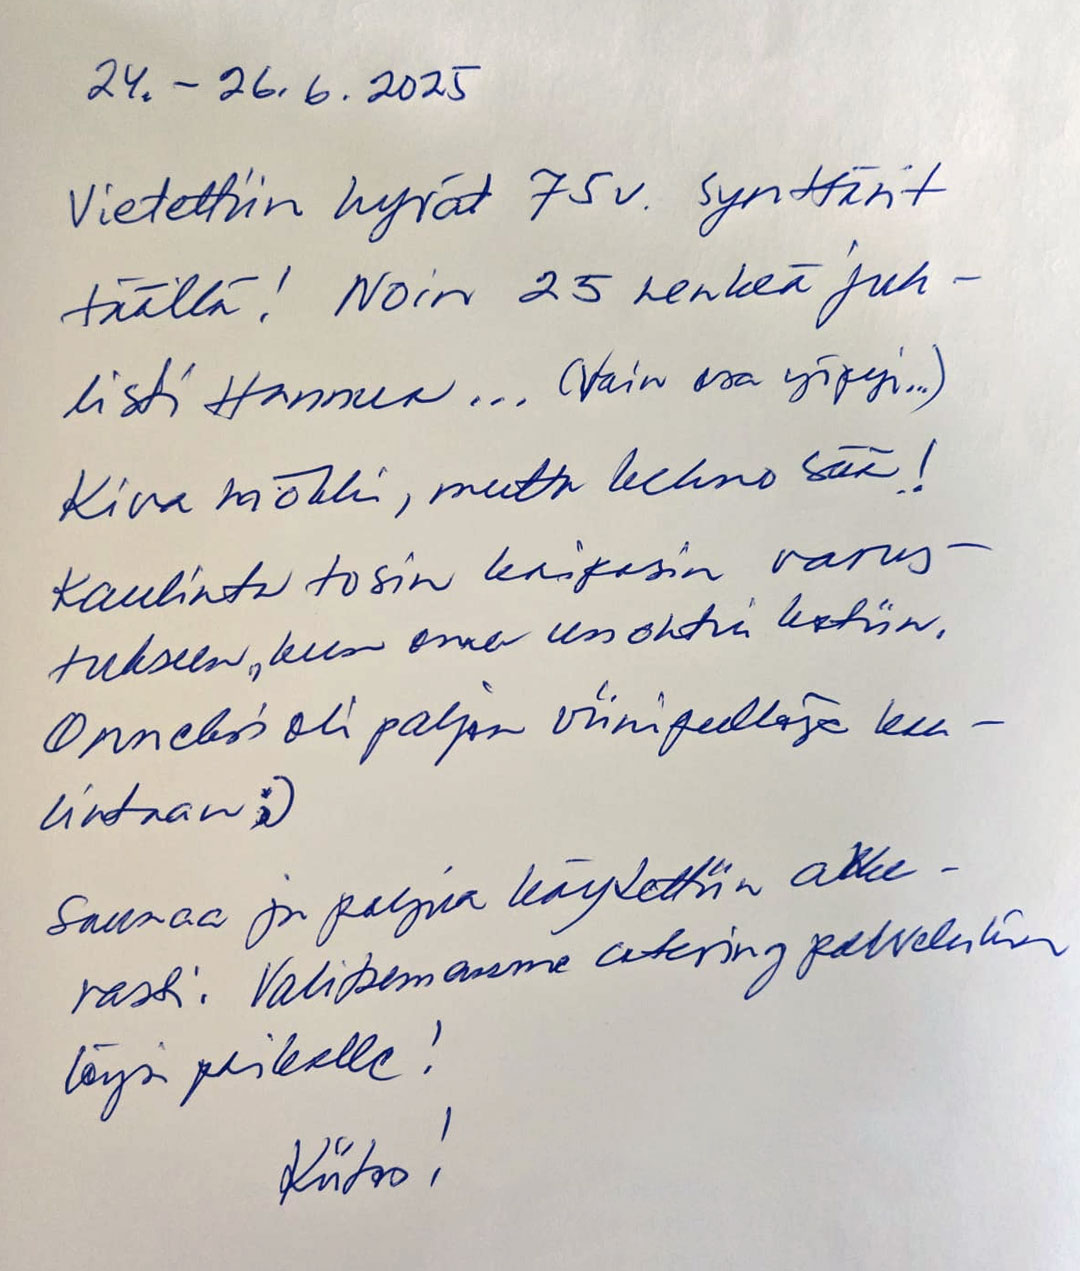 24. - 26.6.2025
Vietettiin hyvät 75v. synttärit
täällä! Noin 25 henkeä juh-
listi Hannua ... (Vain osa yöpyi...)
Kiva mökki, mutta kehno sää!
Kaulinta tosin kaipasin varus-
tukseen, kun oma unohtui kotiin.
Onneksi oli paljon viinipulloja kau-
lintaan ;)
Saunaa ja paljua käytettiin ahke-
rasti. Valitsemamme catering palvelukin
löysi paikalle!
Kiitso!